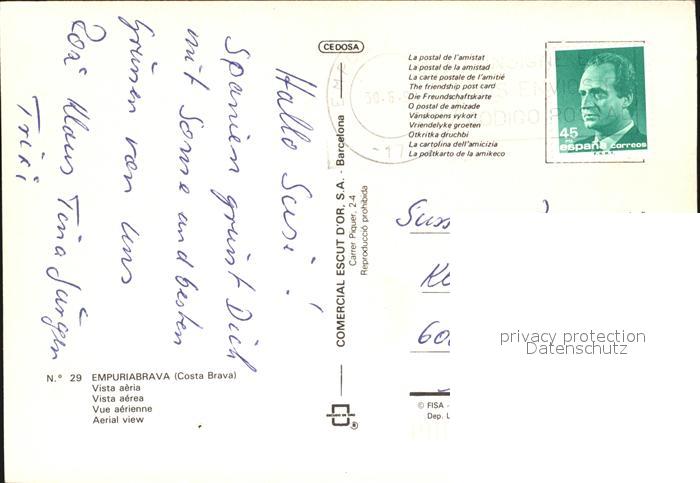 Hallo Susi!
Spanien grüsst Dich
mit Sonne und besten
Grüssen von uns
Rosi Klaus Tina Jürgen
Trixi
N.º 29 EMPURIABRAVA (Costa Brava)
Vista aèria
Vista aérea
Vue aérienne
Aerial view
CEDOSA
COMERCIAL ESCUT D'OR, S.A. - Barcelona
Carrer Piquer, 2-4
Reproducció prohibida
La postal de l'amistat
La postal de la amistad
La carte postale de l'amitié
The friendship post card
Die Freundschaftskarte
O postal de amizade
Vänskopens vykort
Vriendelyke groeten
Otkritka druchbi
La cartolina dell'amicizia
La poŝtkarto de la amikeco
45
españa correos
60
privacy protection
Datenschutz
© FISA -
Dep. L